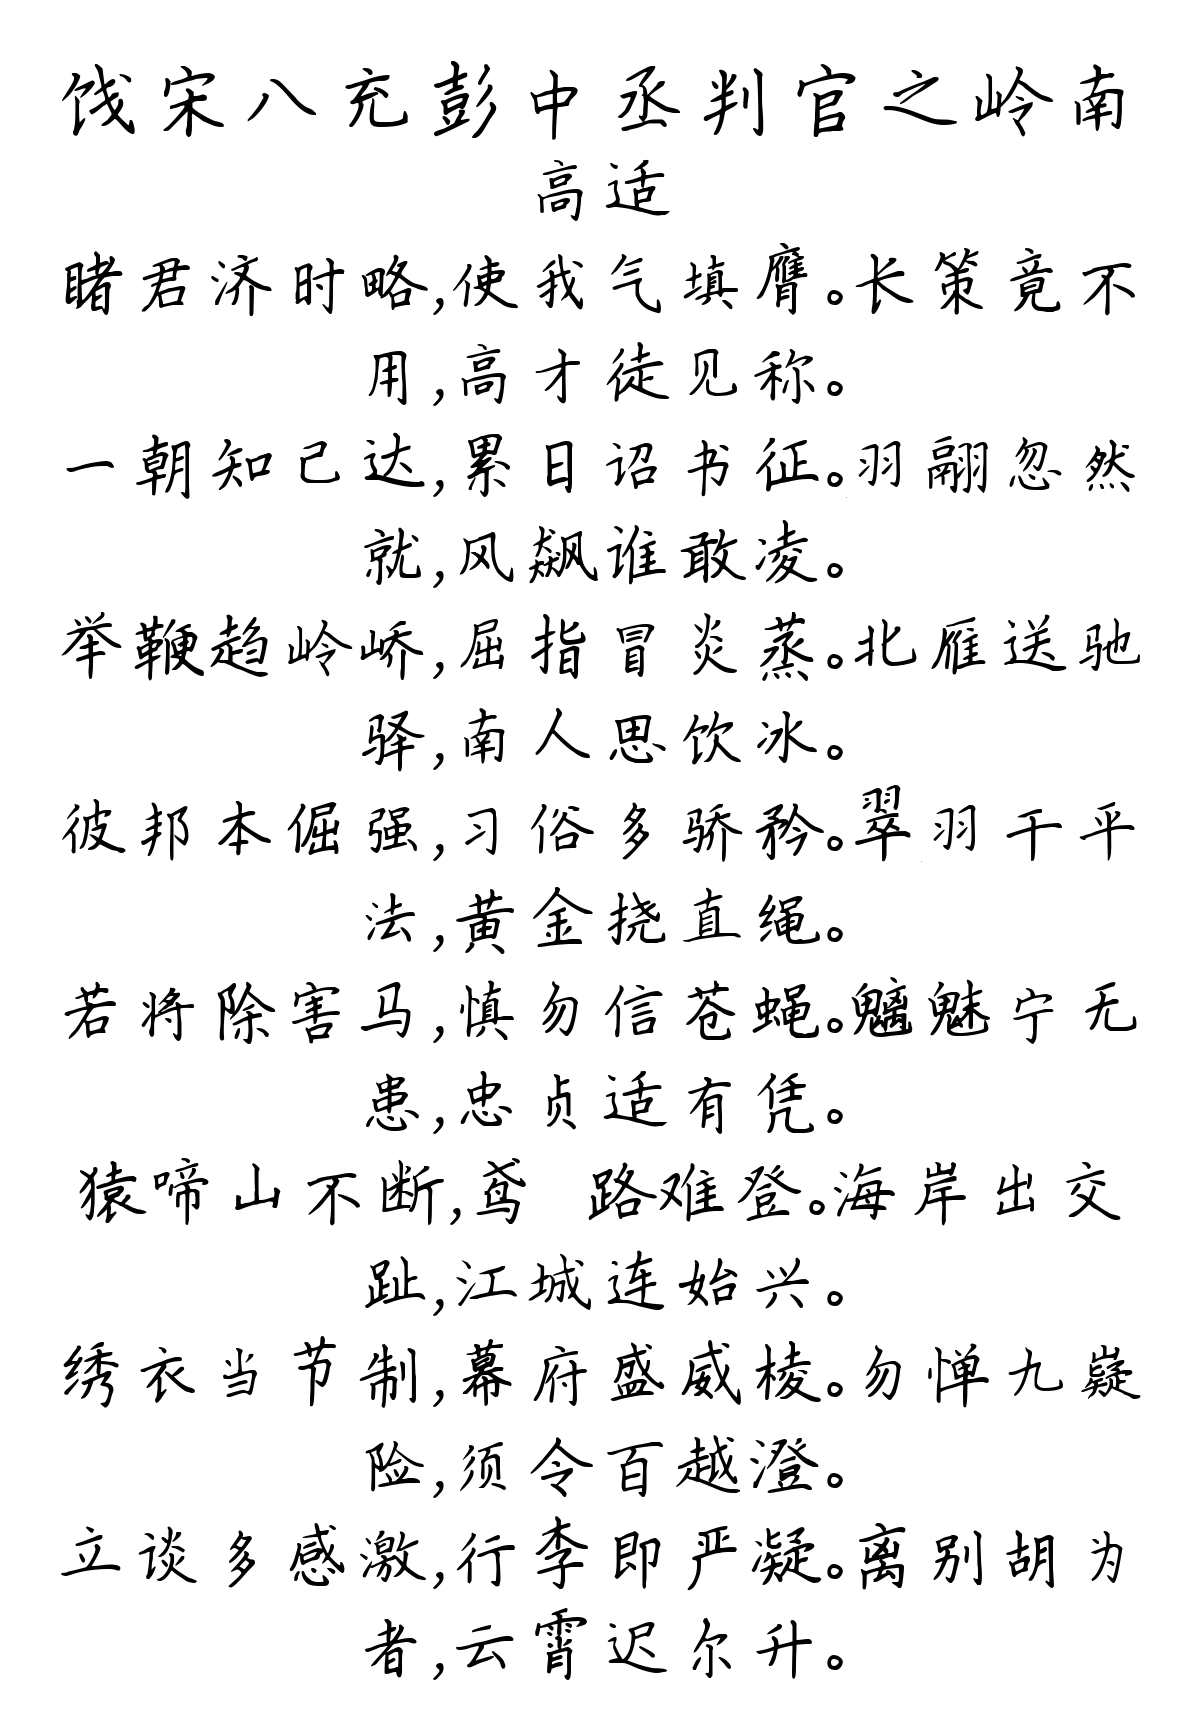 饯宋八充彭中丞判官之岭南
高适
睹君济时略,使我气填膺。长策竟不
用,高才徒见称。
一朝知己达,累日诏书征。羽翮忽然
就,风飙谁敢凌。
举鞭趋岭峤,屈指冒炎蒸。北雁送驰
驿,南人思饮冰。
彼邦本倔强,习俗多骄矜。翠羽干平
法,黄金挠直绳。
若将除害马,慎勿信苍蝇。魑魅宁无
患,忠贞适有凭。
猿啼山不断,鸢 路难登。海岸出交
趾,江城连始兴。
绣衣当节制,幕府盛威棱。勿惮九嶷
险,须令百越澄。
立谈多感激,行李即严凝。离别胡为
者,云霄迟尔升。